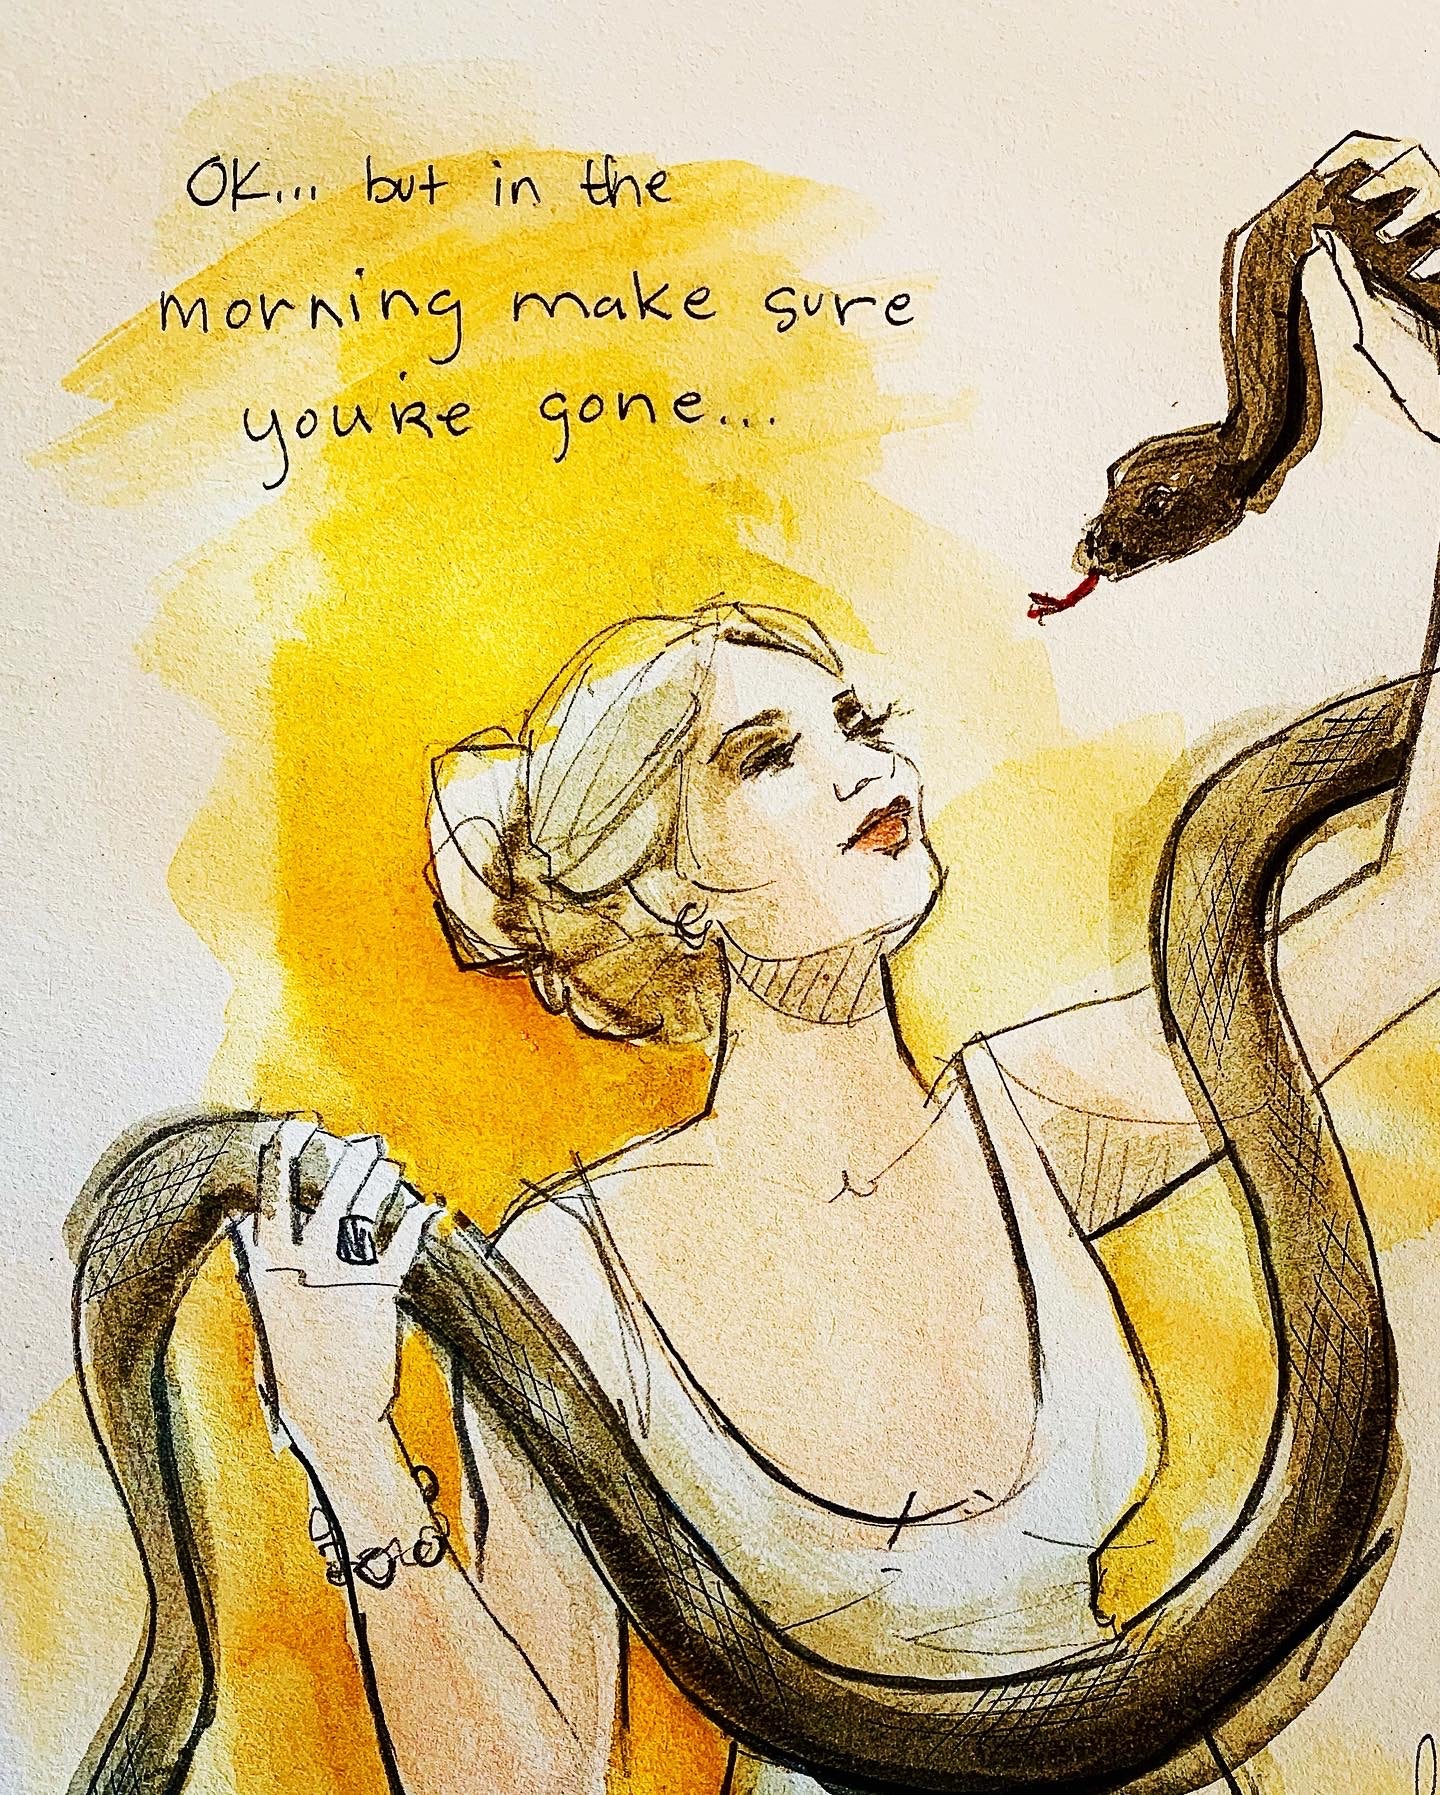 OK... but in the
morning make sure
you're gone...